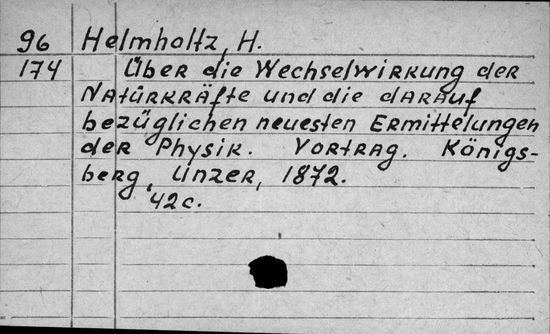 96 Helmholtz, H.
174 Über die Wechselwirkung der
Naturkräfte und die darauf
bezüglichen neuesten Ermittelungen
der Physik. Vortrag. Königs-
berg, Unzer, 1872.
42c.